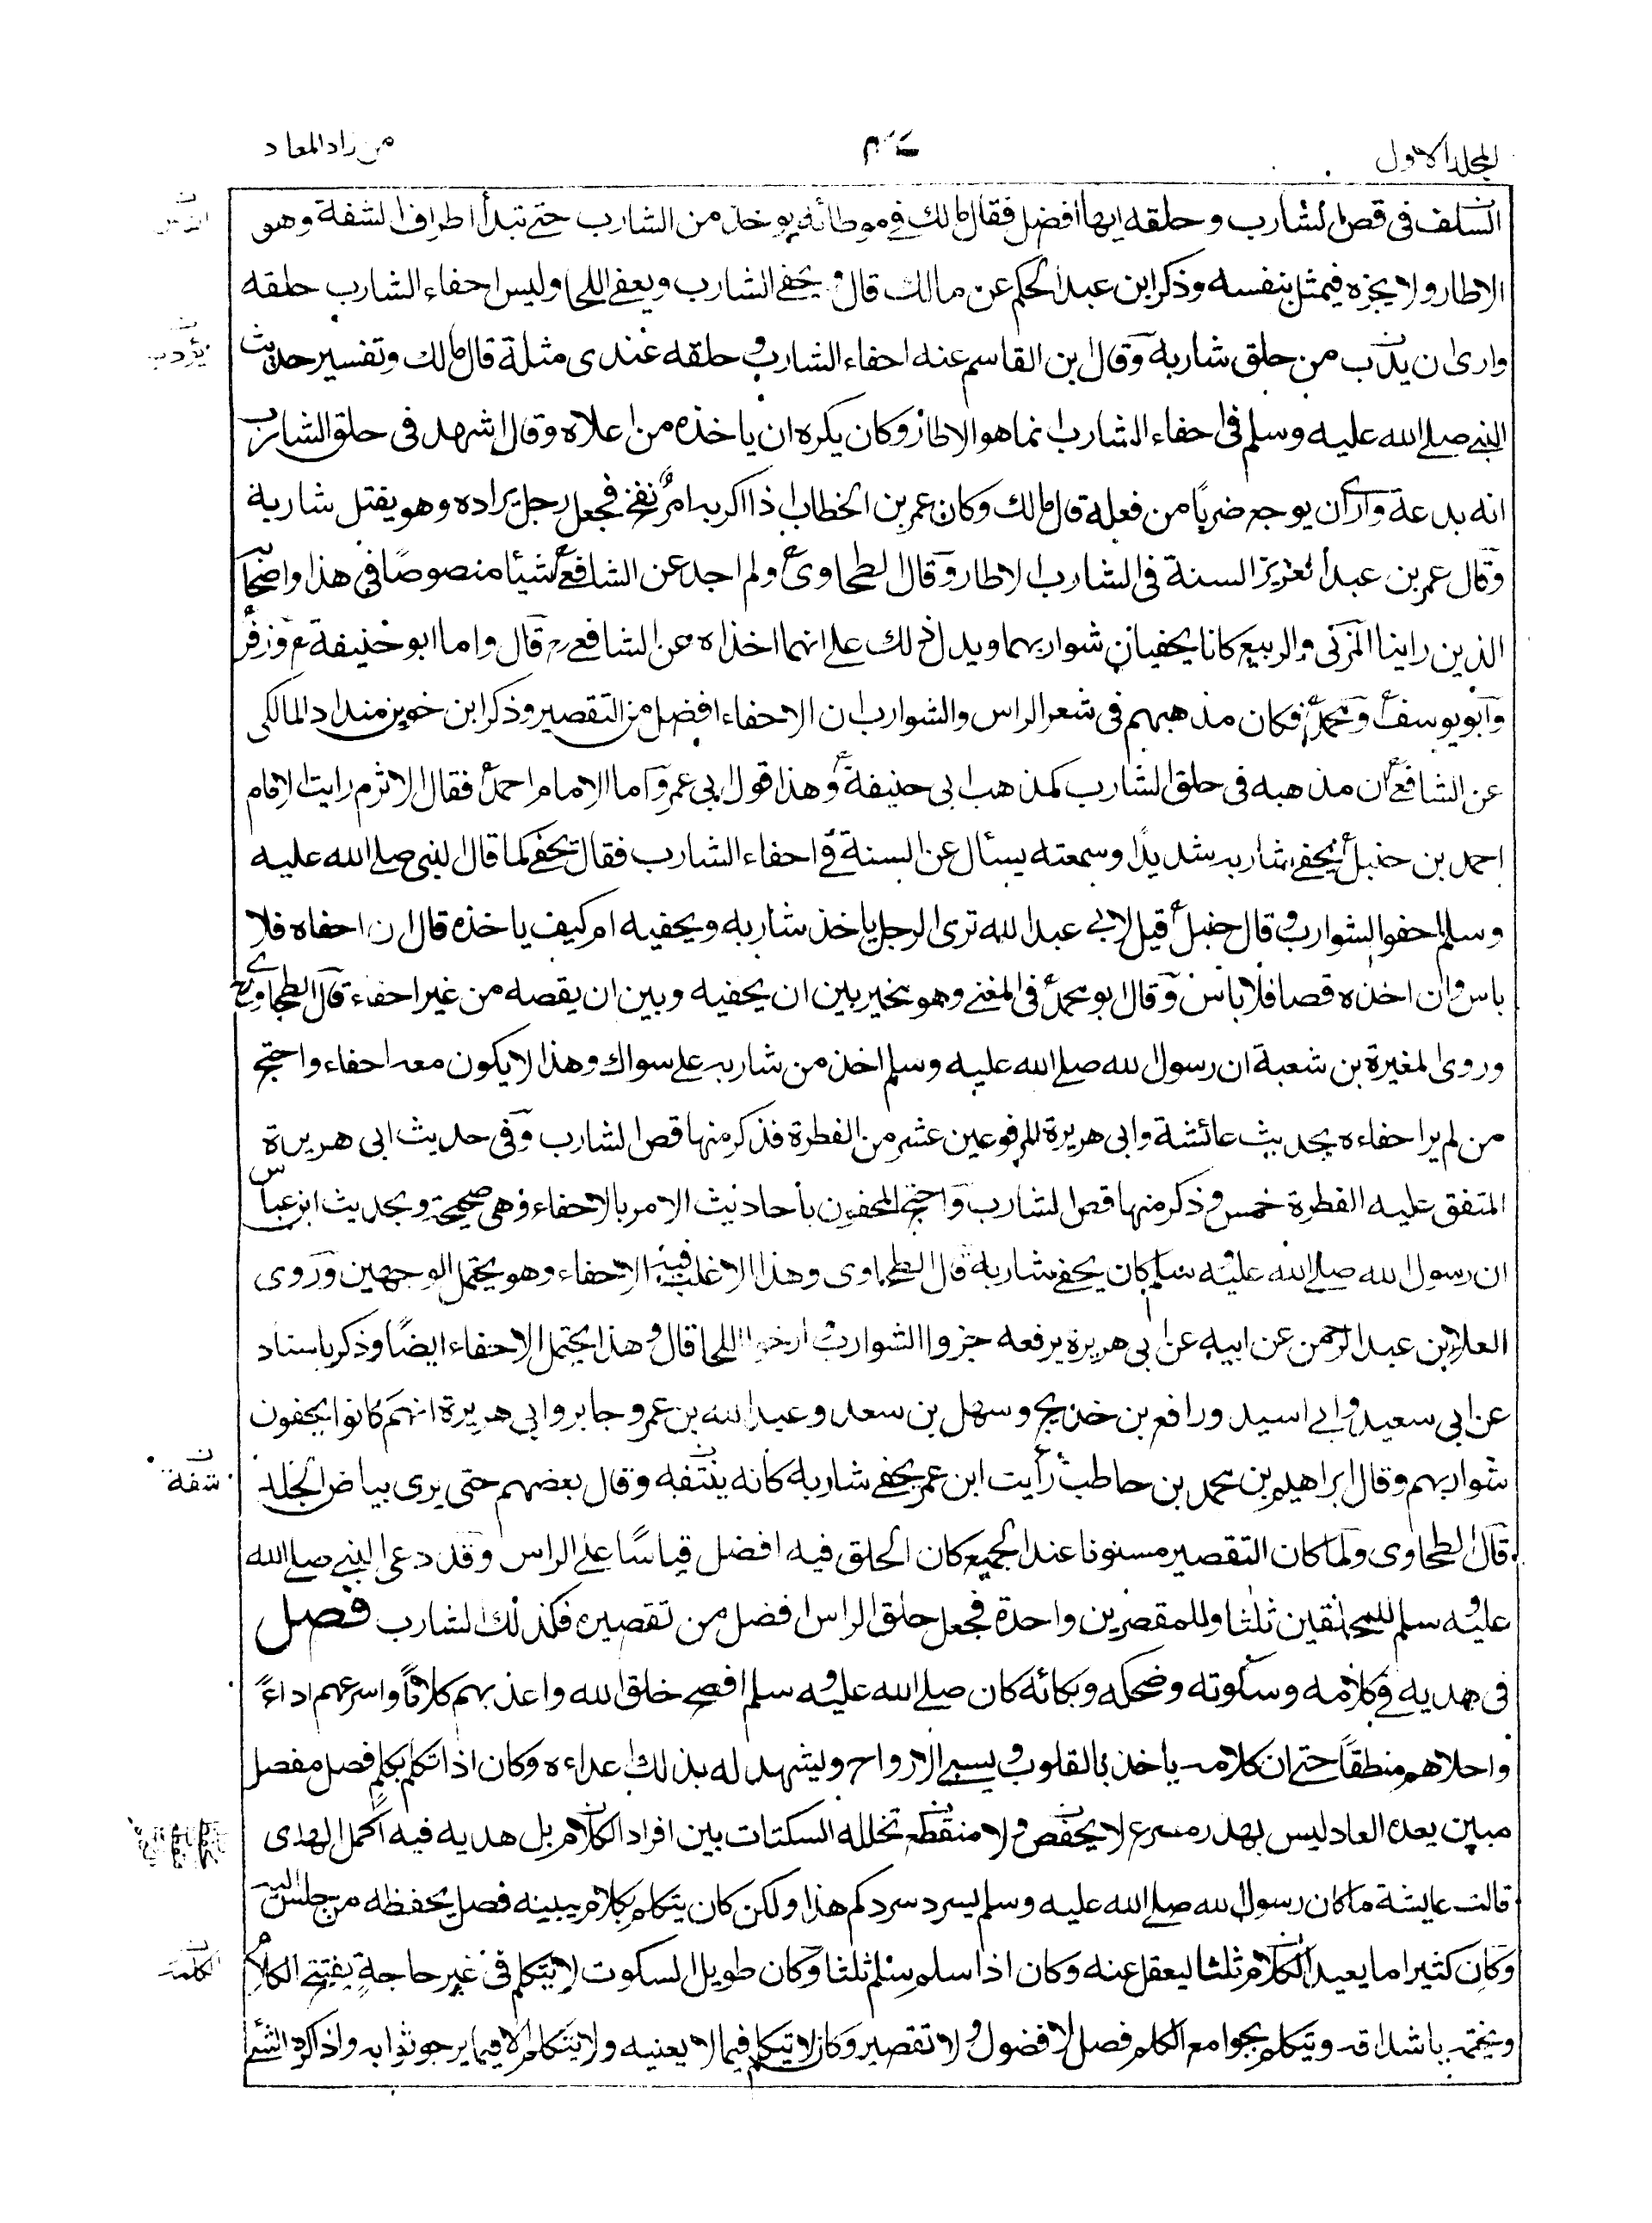 المجلد الاول
من زاد المعاد
السلف فى قص الشارب وحلقه ايهما افضل فقال مالك فى موطائه يوخذ من الشارب حتى تبدأ اطراف الشفة وهو
الاطار ولا يجزه فيمثل بنفسه وذكر ابن عبد الحكم عن مالك قال ويحفى الشارب ويعفى اللحا وليس احفاء الشارب حلقه
وارى ان يؤدب من حلق شاربه وقال ابن القاسم عنه احفاء الشارب وحلقه عندى مثلة قال مالك وتفسير حديث
النبى صلى الله عليه وسلم فى احفاء الشارب انما هو الاطار وكان يكره ان ياخذه من اعلاه وقال اشهد فى حلق الشارب
انه بدعة وارى ان يوجع ضربًا من فعله قال مالك وكان عمر بن الخطاب اذا اكربه امر نفخ فجعل رجل يراده وهو يفتل شاربه
وقال عمر بن عبد العزيز السنة فى الشارب الاطار وقال الطحاوى ولم اجد عن الشافعى شيئا منصوصًا فى هذا واصحابه
الذين راينا المزنى والربيع كانا يحفيان شواربهما ويدل ذلك على انهما اخذاه عن الشافعى قال واما ابو حنيفة وزفر
وابو يوسف ومحمد فكان مذهبهم فى شعر الراس والشوارب ان الاحفاء افضل من التقصير وذكر ابن خويز منداد المالكى
عن الشافعى ان مذهبه فى حلق الشارب كمذهب ابى حنيفة وهذا قول ابى عمر واما الامام احمد فقال الاثرم رايت الامام
احمد بن حنبل يحفى شاربه شديدًا وسمعته يسأل عن السنة فى احفاء الشارب فقال يحفى كما قال النبى صلى الله عليه
وسلم احفوا الشوارب وقال حنبل قيل لابى عبد الله ترى الرجل ياخذ شاربه ويحفيه ام كيف ياخذه قال ان احفاه فلا
باس وان اخذه قصا فلا باس وقال ابو محمد فى المغنى وهو مخير بين ان يحفيه وبين ان يقصه من غير احفاء قال الطحاوى
وروى المغيرة بن شعبة ان رسول الله صلى الله عليه وسلم اخذ من شاربه على سواك وهذا لا يكون معه احفاء واحتج
من لم ير احفاءه بحديث عائشة وابى هريرة المرفوعين عشر من الفطرة فذكر منها قص الشارب وفى حديث ابى هريرة
المتفق عليه الفطرة خمس وذكر منها قص الشارب واحتج المحفون بأحاديث الامر بالاحفاء وهى صحيحة وبحديث ابن عباس
ان رسول الله صلى الله عليه وسلم كان يحفى شاربه قال الطحاوى وهذا الاغلب فيه الاحفاء وهو يحتمل الوجهين وروى
العلاء بن عبد الرحمن عن ابيه عن ابى هريرة يرفعه جزوا الشوارب وارخوا اللحا قال وهذا يحتمل الاحفاء ايضًا وذكر باسناد
عن ابى سعيد وابى اسيد ورافع بن خديج وسهل بن سعد وعبد الله بن عمر وجابر وابى هريرة انهم كانوا يحفون
شواربهم وقال ابراهيم بن محمد بن حاطب رأيت ابن عمر يحفى شاربه كانه ينتفه وقال بعضهم حتى يرى بياض الجلد
قال الطحاوى ولما كان التقصير مسنونا عند الجميع كان الحلق فيه افضل قياسًا على الراس وقد دعى النبى صلى الله
عليه وسلم للمحلقين ثلثا وللمقصرين واحدة فجعل حلق الراس افضل من تقصيره فكذلك الشارب فصل
فى هديه فى كلامه وسكوته وضحكه وبكائه كان صلى الله عليه وسلم افصح خلق الله واعذبهم كلامًا واسرعهم اداءً
واحلاهم منطقًا حتى ان كلامه ياخذ بالقلوب ويسبى الارواح ويشهد له بذلك اعداءه وكان اذا تكلم بكلم فصل مفصل
مبين يعده العاد ليس بهذر مسرع لا يحفص ولا منقطع تخلله السكتات بين افراد الكلام بل هديه فيه اكمل الهدى
قالت عايشة ما كان رسول الله صلى الله عليه وسلم يسرد سردكم هذا ولكن كان يتكلم بكلام يبينه فصل يحفظه من جلس اليه
وكان كثيرا ما يعيد الكلام ثلثا ليعقل عنه وكان اذا سلم سلم ثلثا وكان طويل السكوت لا يتكلم فى غير حاجة يفتتح الكلام
ويختمه باشداقه ويتكلم بجوامع الكلم فصل لا فضول ولا تقصير وكان لا يتكلم فيما لا يعنيه ولا يتكلم الا فيما يرجو ثوابه واذا كره الشئ
يؤدب
شفة
الكلمة